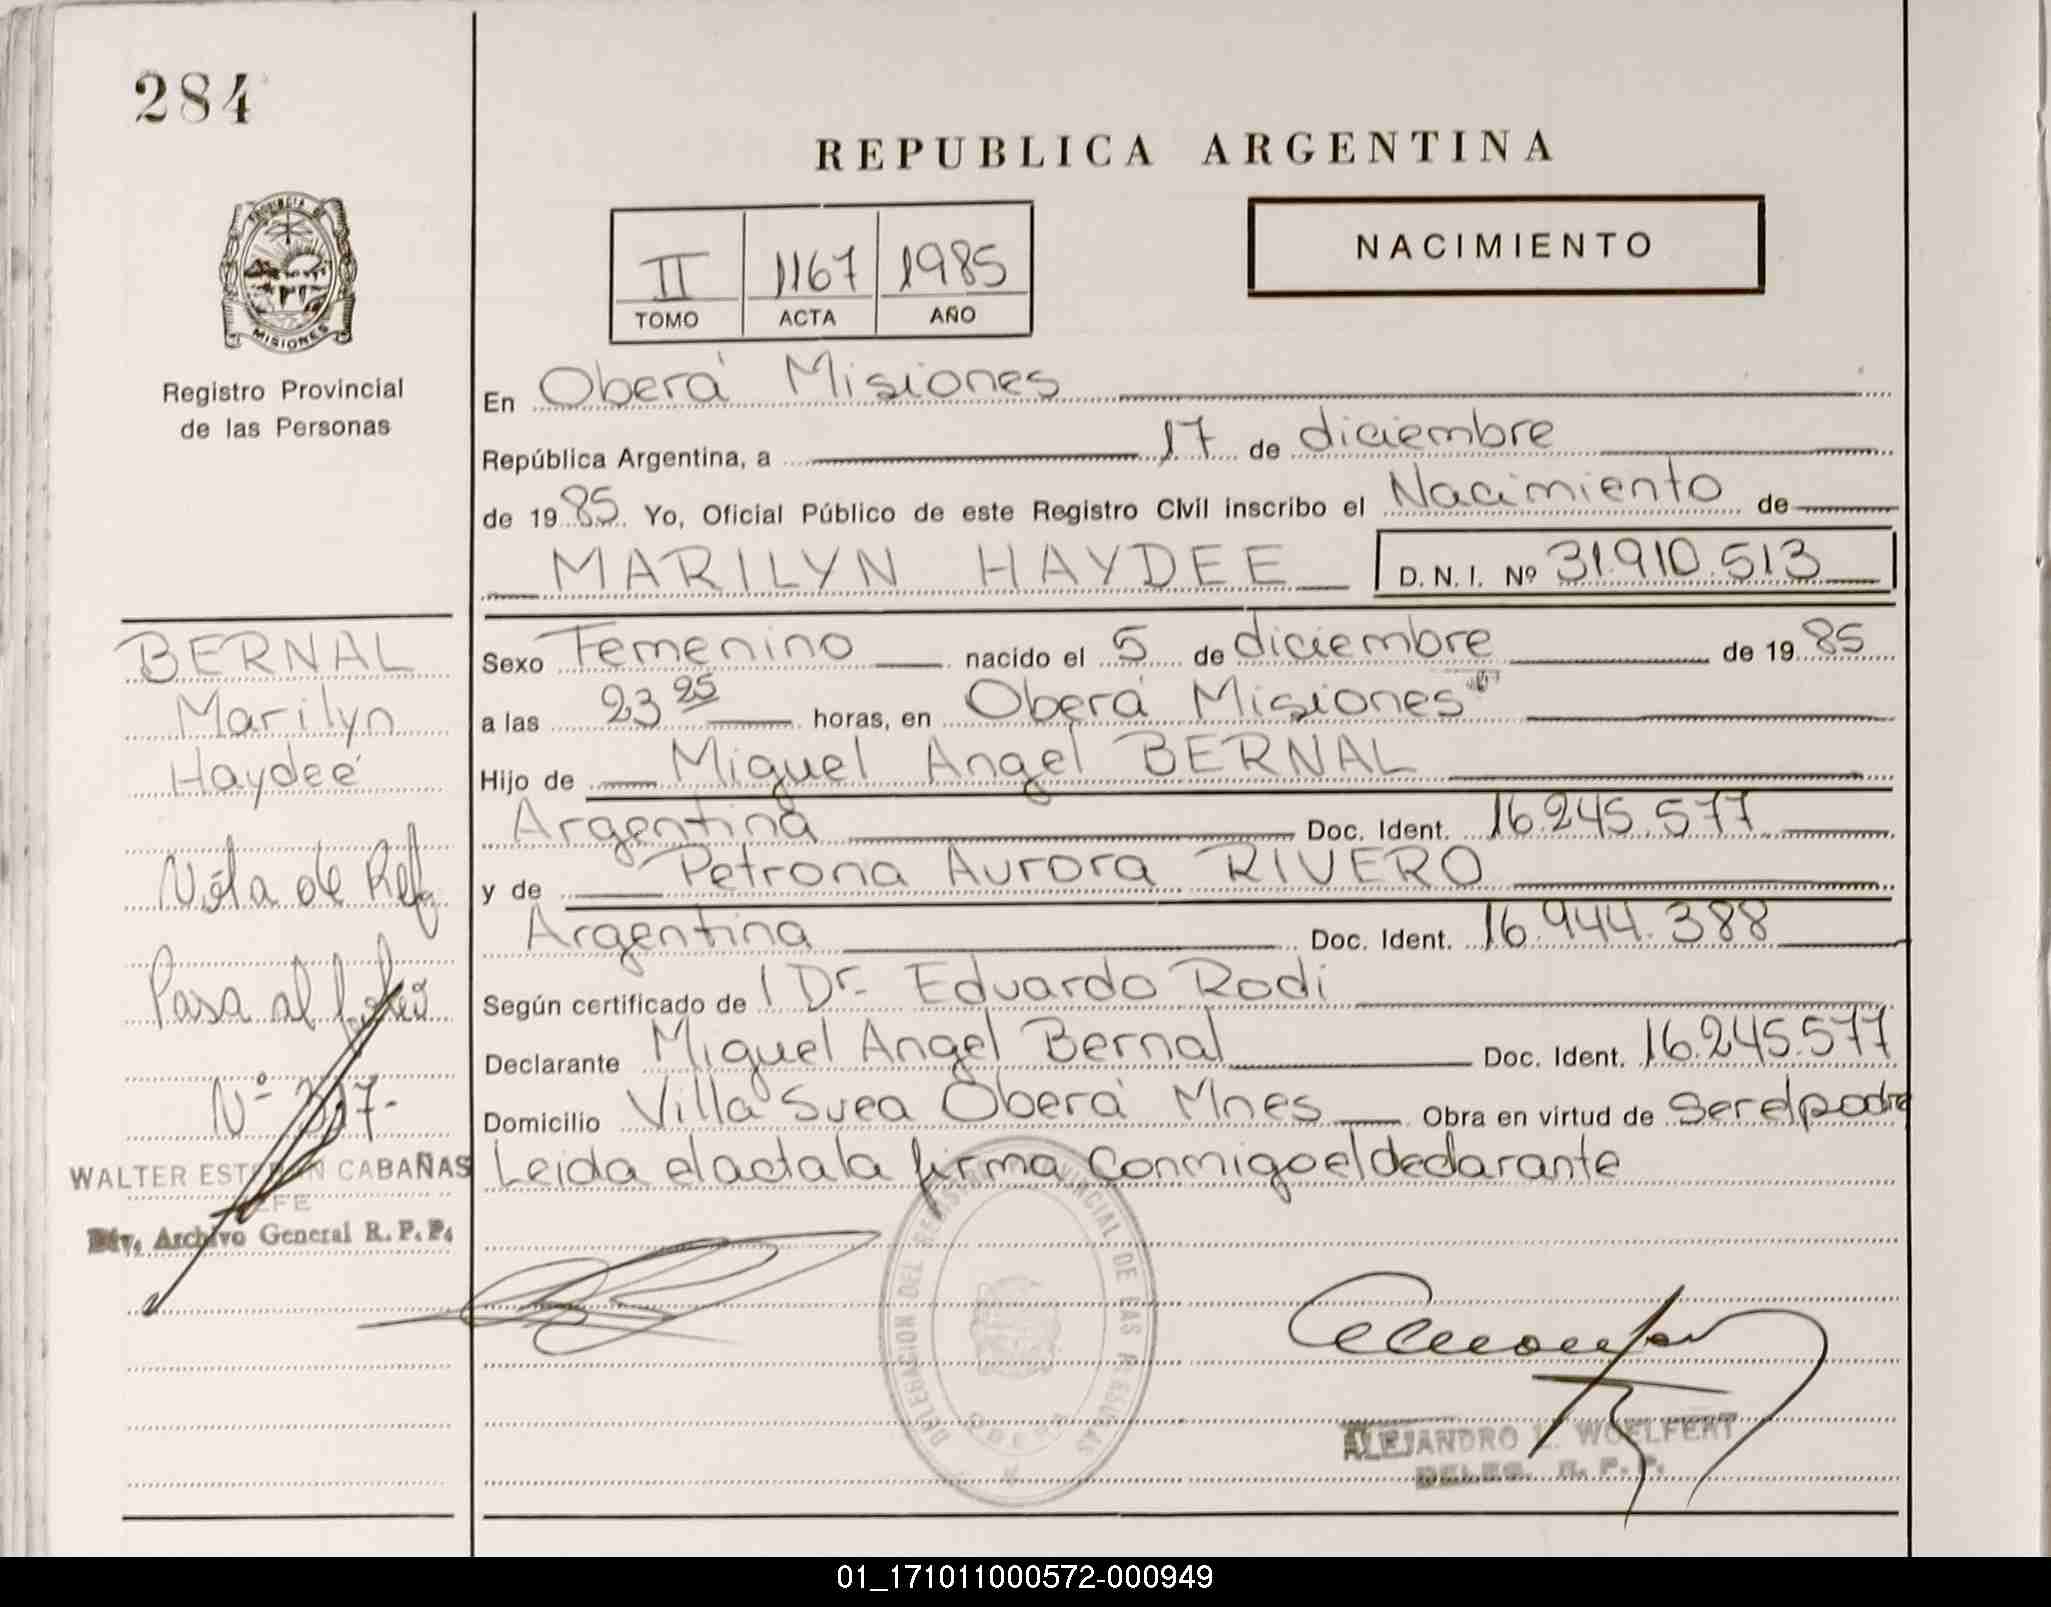 284
REPUBLICA ARGENTINA
PROVINCIA DE
MISIONES
Registro Provincial
de las Personas
II 1167 1985
TOMO ACTA AÑO
NACIMIENTO
En Oberá Misiones
República Argentina, a 17 de diciembre
de 1985 Yo, Oficial Público de este Registro Civil inscribo el Nacimiento de
MARILYN HAYDEE D.N.I. Nº 31.910.513
Sexo Femenino nacido el 5 de diciembre de 1985
a las 23 25 horas, en Oberá Misiones
Hijo de Miguel Angel BERNAL
Argentina Doc. Ident. 16.245.577
y de Petrona Aurora RIVERO
Argentina Doc. Ident. 16.944.388
Según certificado de l Dr. Eduardo Rodi
Declarante Miguel Angel Bernal Doc. Ident. 16.245.577
Domicilio Villa Svea Oberá Mnes Obra en virtud de ser el padre
Leida el acta la firma conmigo el declarante
BERNAL
Marilyn
Haydeé
Nota de Ref
Pasa al folio
Nº 317-
WALTER ESTEBAN CABAÑAS
JEFE
Div. Archivo General R.P.P.
DELEGACION DEL REGISTRO PROVINCIAL DE LAS PERSONAS
OBERA
ALEJANDRO L. WOELFERT
DELEG. R.P.P.
01_171011000572-000949